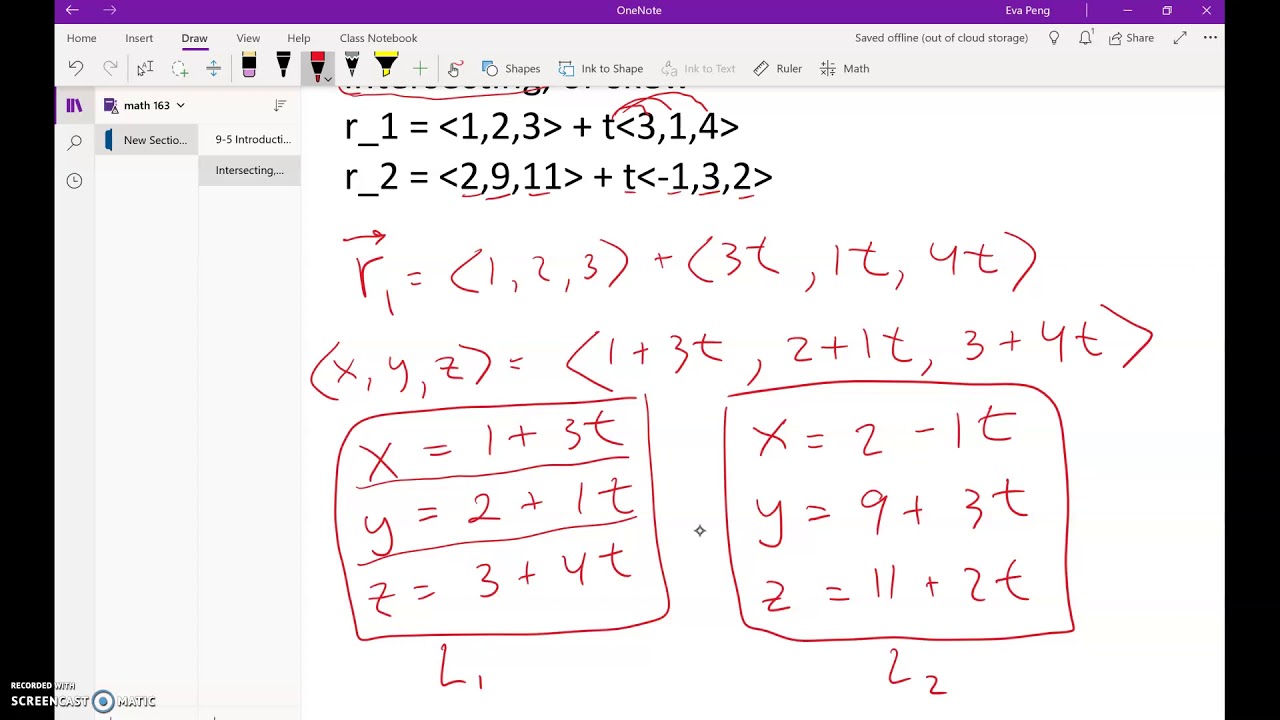 OneNote
Eva Peng
Home Insert Draw View Help Class Notebook
Saved offline (out of cloud storage)
Share
Shapes Ink to Shape Ink to Text Ruler Math
math 163
New Sectio...
9-5 Introducti...
Intersecting,...
intersecting, or skew
r_1 = <1,2,3> + t<3,1,4>
r_2 = <2,9,11> + t<-1,3,2>
r₁ = ⟨1, 2, 3⟩ + ⟨3t, 1t, 4t⟩
⟨x, y, z⟩ = ⟨1+3t, 2+1t, 3+4t⟩
x = 1 + 3t
y = 2 + 1t
z = 3 + 4t
L₁
x = 2 - 1t
y = 9 + 3t
z = 11 + 2t
L₂
RECORDED WITH
SCREENCAST MATIC